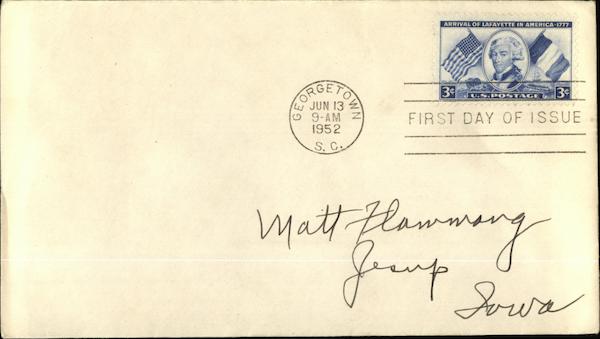 ARRIVAL OF LAFAYETTE IN AMERICA-1777
3¢ U.S. POSTAGE 3¢
GEORGETOWN
JUN 13
9-AM
1952
S. C.
FIRST DAY OF ISSUE
Matt Flammang
Jesup
Iowa